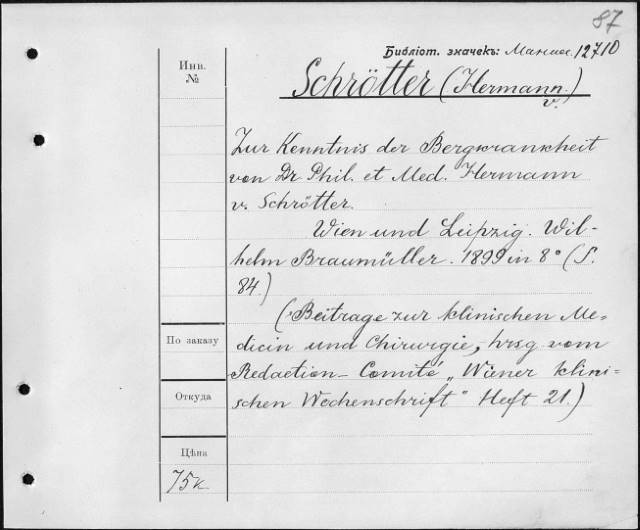 87
Библіот. значекъ: 12710
Инв.
№
Schrötter (Hermann v.)
Zur Kenntnis der Bergkrankheit
von Dr Phil. et Med. Hermann
v. Schrötter.
Wien und Leipzig. Wil-
helm Braumüller. 1899 in 8° (S.
84)
(Beitrage zur klinischen Me-
dicin und Chirurgie, hrsg. vom
Redaction-Comité „Wiener klini-
schen Wochenschrift" Heft 21.)
По заказу
Откуда
Цѣна
75к